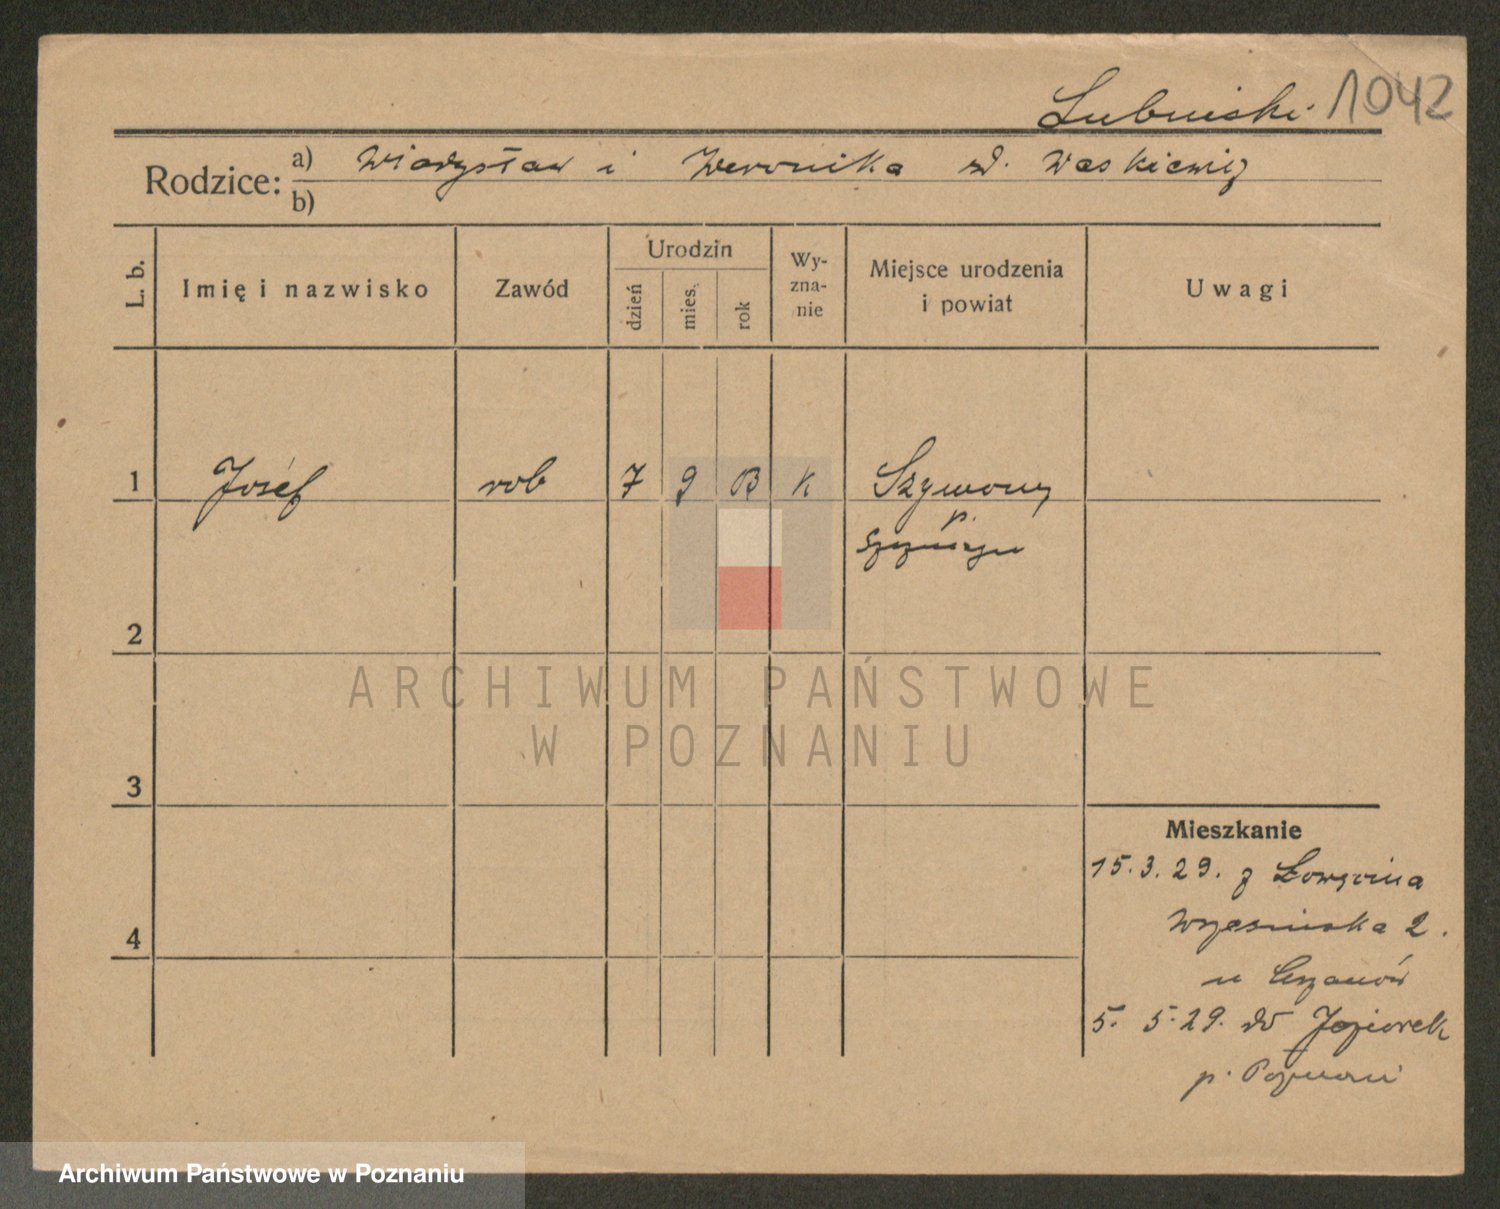 Lubniski 1042
Rodzice: a) Władysław i Weronika zd. Waskiewicz
b)
L. b. Imię i nazwisko Zawód Urodzin dzień mies. rok Wy-zna-nie Miejsce urodzenia i powiat Uwagi
1 Józef rob 7 9 K
p.
2
ARCHIWUM PAŃSTWOWE
W POZNANIU
3
Mieszkanie
15.3.29. z
4 Wrzesinska 2.
u
5. 5.29. do Jeziorek
p. Poznań
Archiwum Państwowe w Poznaniu